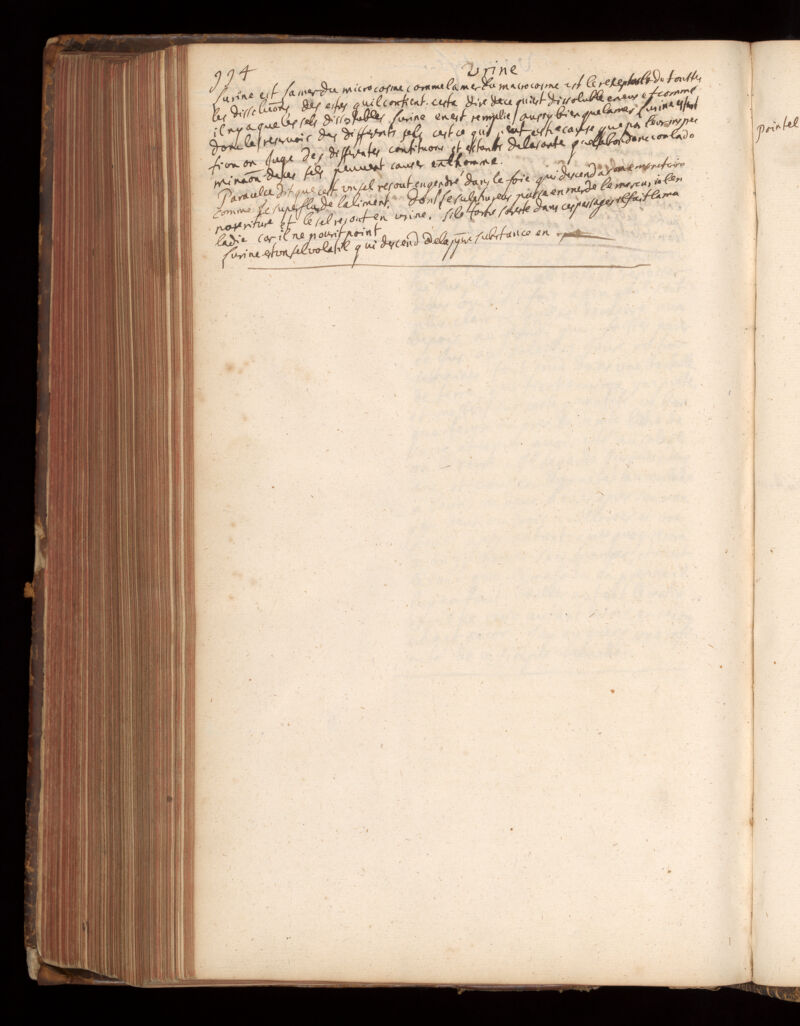 994
Urine
Lurine est la mer du microcosme comme la mer du macrocosme est le receptacle de touttes
les dissolutions des estres quil contient. cest a dire de ce qui est dissoluble en eux et comme
il ny a que les sels dissolubles lurine en est remplie aussy bien que la mer lurine estant
donc le reservoir des differents sels cest ce qui est cause que par leur inspec
tion on juge des differentes constitutions et estants de la sante quelabondance ou la do
mination de ces sels peuvent causer en lhomme.
Paracelce dit que cest un sel resout engendre dans le foie qui descend a son emonctoire
comme le superflu de laliment. Dont le sulphureux passe en merde le mercur, en
nouriture Et le sel resout en urine. si le tartre sareste dans ces passages il fait la ma
ladie car il ne pourit point
Lurine est un sel volatil qui descend de la substance en
pointel